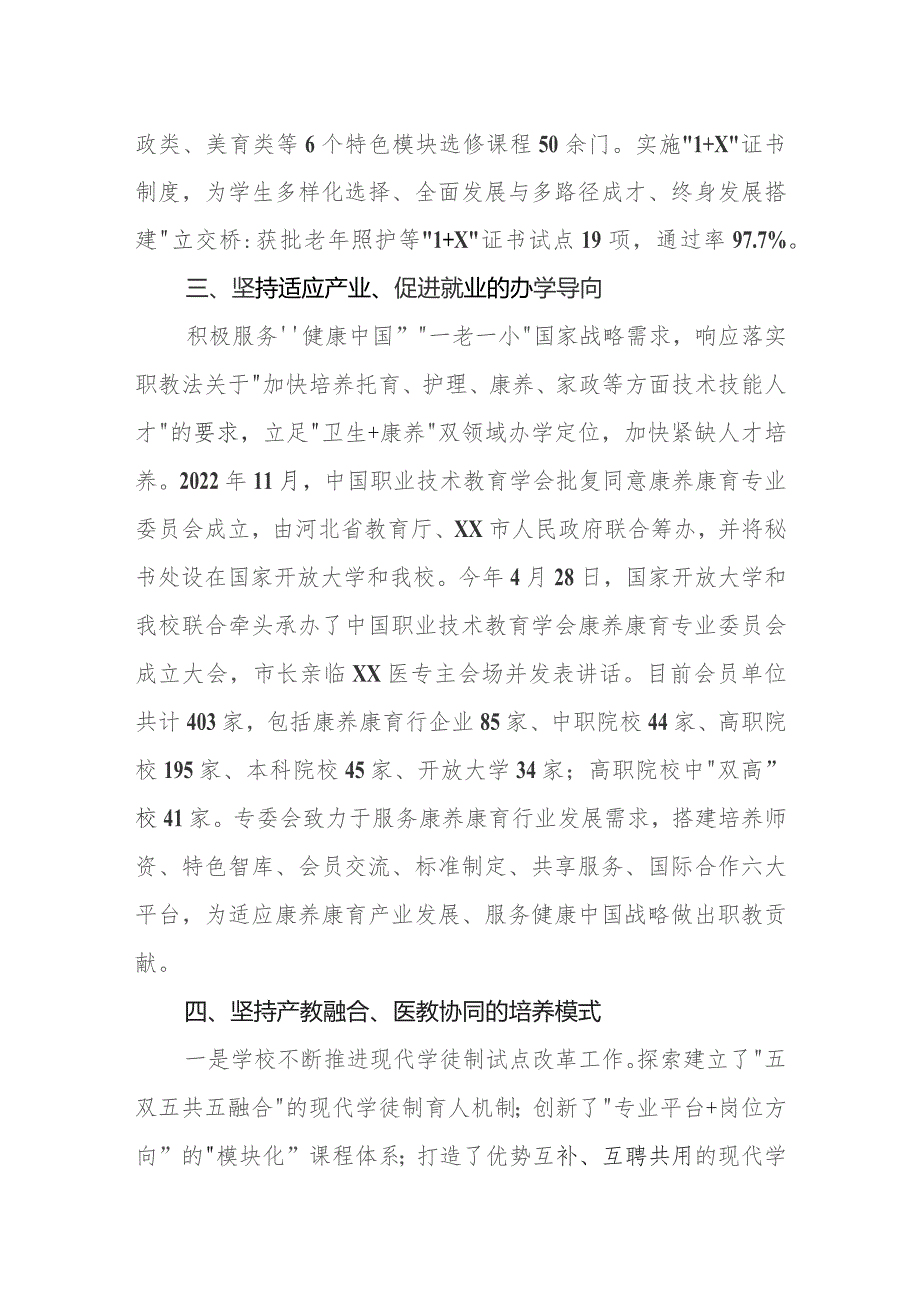 政类、美育类等 6 个特色模块选修课程 50 余门。实施"1+X"证书
制度，为学生多样化选择、全面发展与多路径成才、终身发展搭
建"立交桥：获批老年照护等"1+X"证书试点 19 项，通过率 97.7%。
三、坚持适应产业、促进就业的办学导向
积极服务''健康中国”"一老一小"国家战略需求，响应落实
职教法关于"加快培养托育、护理、康养、家政等方面技术技能人
才"的要求，立足"卫生+康养"双领域办学定位，加快紧缺人才培
养。2022 年 11 月，中国职业技术教育学会批复同意康养康育专业
委员会成立，由河北省教育厅、XX 市人民政府联合筹办，并将秘
书处设在国家开放大学和我校。今年 4 月 28 日，国家开放大学和
我校联合牵头承办了中国职业技术教育学会康养康育专业委员会
成立大会，市长亲临 XX 医专主会场并发表讲话。目前会员单位
共计 403 家，包括康养康育行企业 85 家、中职院校 44 家、高职院
校 195 家、本科院校 45 家、开放大学 34 家；高职院校中"双高”
校 41 家。专委会致力于服务康养康育行业发展需求，搭建培养师
资、特色智库、会员交流、标准制定、共享服务、国际合作六大
平台，为适应康养康育产业发展、服务健康中国战略做出职教贡
献。
四、坚持产教融合、医教协同的培养模式
一是学校不断推进现代学徒制试点改革工作。探索建立了"五
双五共五融合"的现代学徒制育人机制；创新了"专业平台+岗位方
向”的"模块化”课程体系；打造了优势互补、互聘共用的现代学